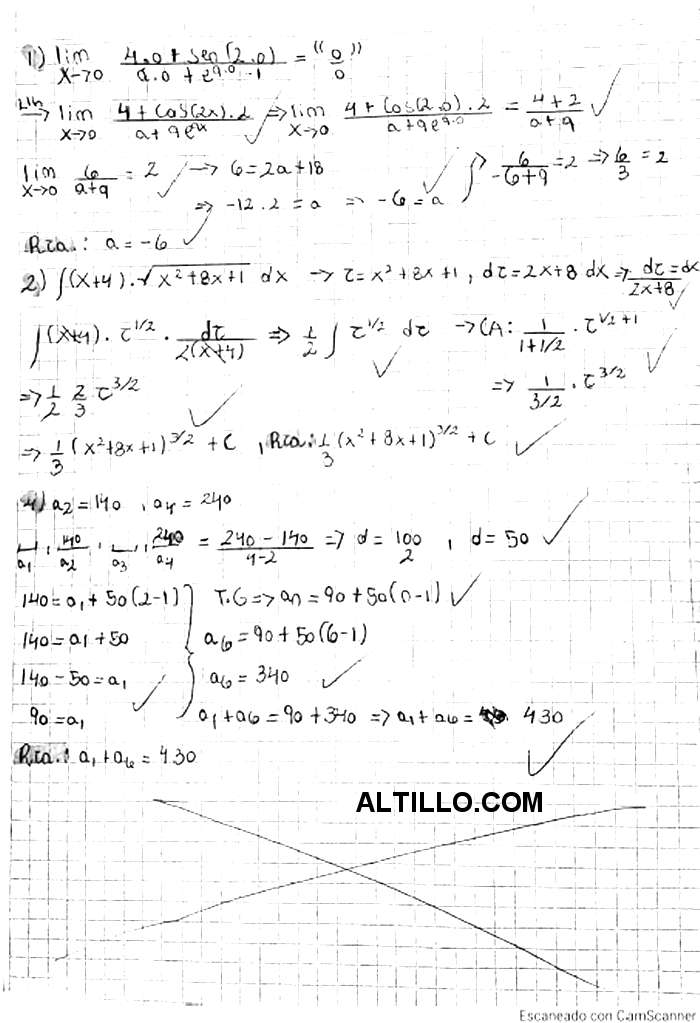 1) lim x→0 (4.0 + sen(2.0))/(a.0 + e^9.0 - 1) = "0/0"
L'H → lim x→0 (4 + cos(2x).2)/(a + 9e^9x) ⇒ lim x→0 (4 + cos(2.0).2)/(a + 9e^9.0) = (4+2)/(a+9) ✓
lim x→0 6/(a+9) = 2 ✓ → 6 = 2a + 18 ✓ 6/(-6+9) = 2 ⇒ 6/3 = 2
⇒ -12.2 = a ⇒ -6 = a
Rta.: a = -6 ✓
2) ∫(x+4).√(x²+8x+1) dx → τ = x²+8x+1, dτ = 2x+8 dx ⇒ dτ/(2x+8) = dx ✓
∫(x+4).τ^1/2 . dτ/(2(x+4)) ⇒ 1/2 ∫ τ^1/2 dτ ✓ → CA: 1/(1+1/2) . τ^(1/2+1) ✓
⇒ 1/2 2/3 τ^3/2 ✓ ⇒ 1/(3/2) . τ^3/2
⇒ 1/3 (x²+8x+1)^3/2 + C, Rta: 1/3 (x²+8x+1)^3/2 + C ✓
4) a2 = 140, a4 = 240
__/a1, 140/a2, __/a3, 240/a4 = (240 - 140)/(4-2) ⇒ d = 100/2, d = 50 ✓
140 = a1 + 50(2-1) } T.G ⇒ an = 90 + 50(n-1) ✓
140 = a1 + 50 a6 = 90 + 50(6-1)
140 - 50 = a1 a6 = 340 ✓
90 = a1 ✓ a1 + a6 = 90 + 340 ⇒ a1 + a6 = 430
Rta.: a1 + a6 = 430 ✓
ALTILLO.COM
Escaneado con CamScanner